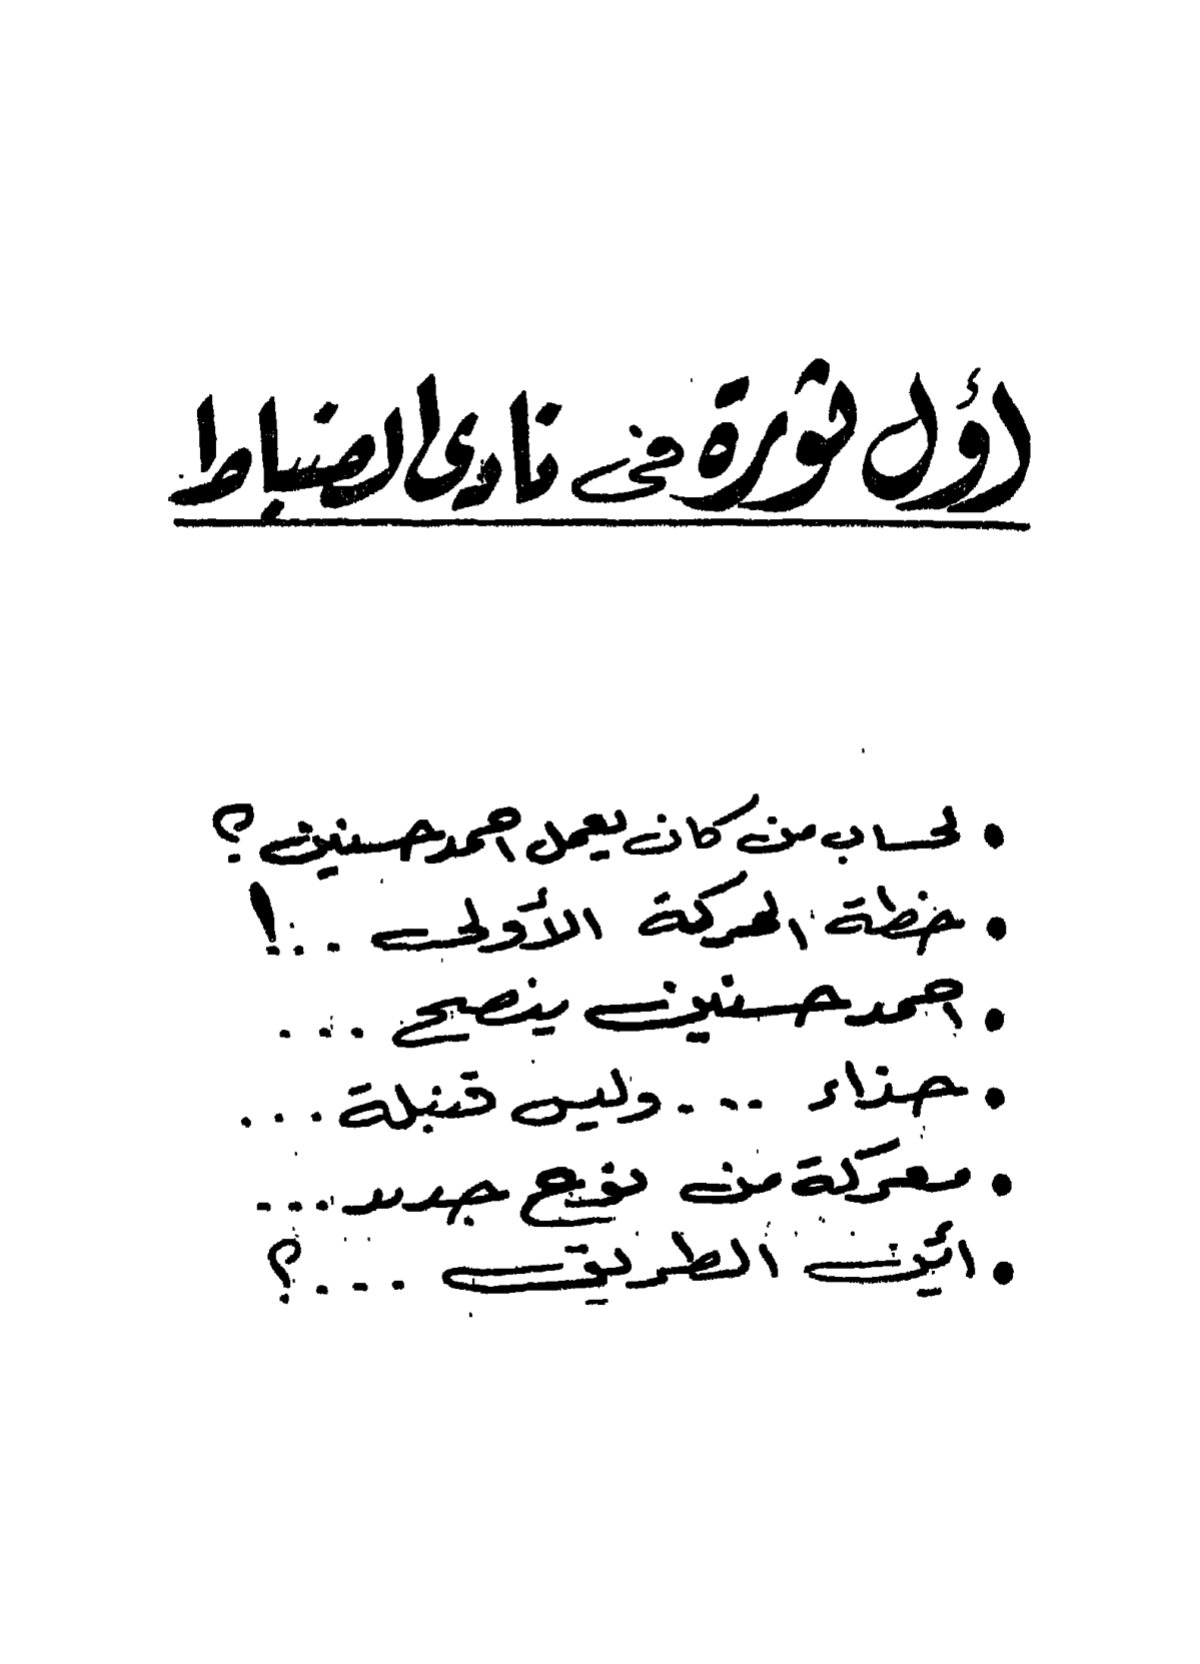 أول ثورة فى نادى الضباط
• لحساب من كان يعمل احمد حسنين ؟
• خطة الحركة الأولى . . . !
• احمد حسنين ينصح . . .
• حذاء . . . وليس قنبلة . . .
• معركة من نوع جديد . . .
• أين الطريق . . . ؟